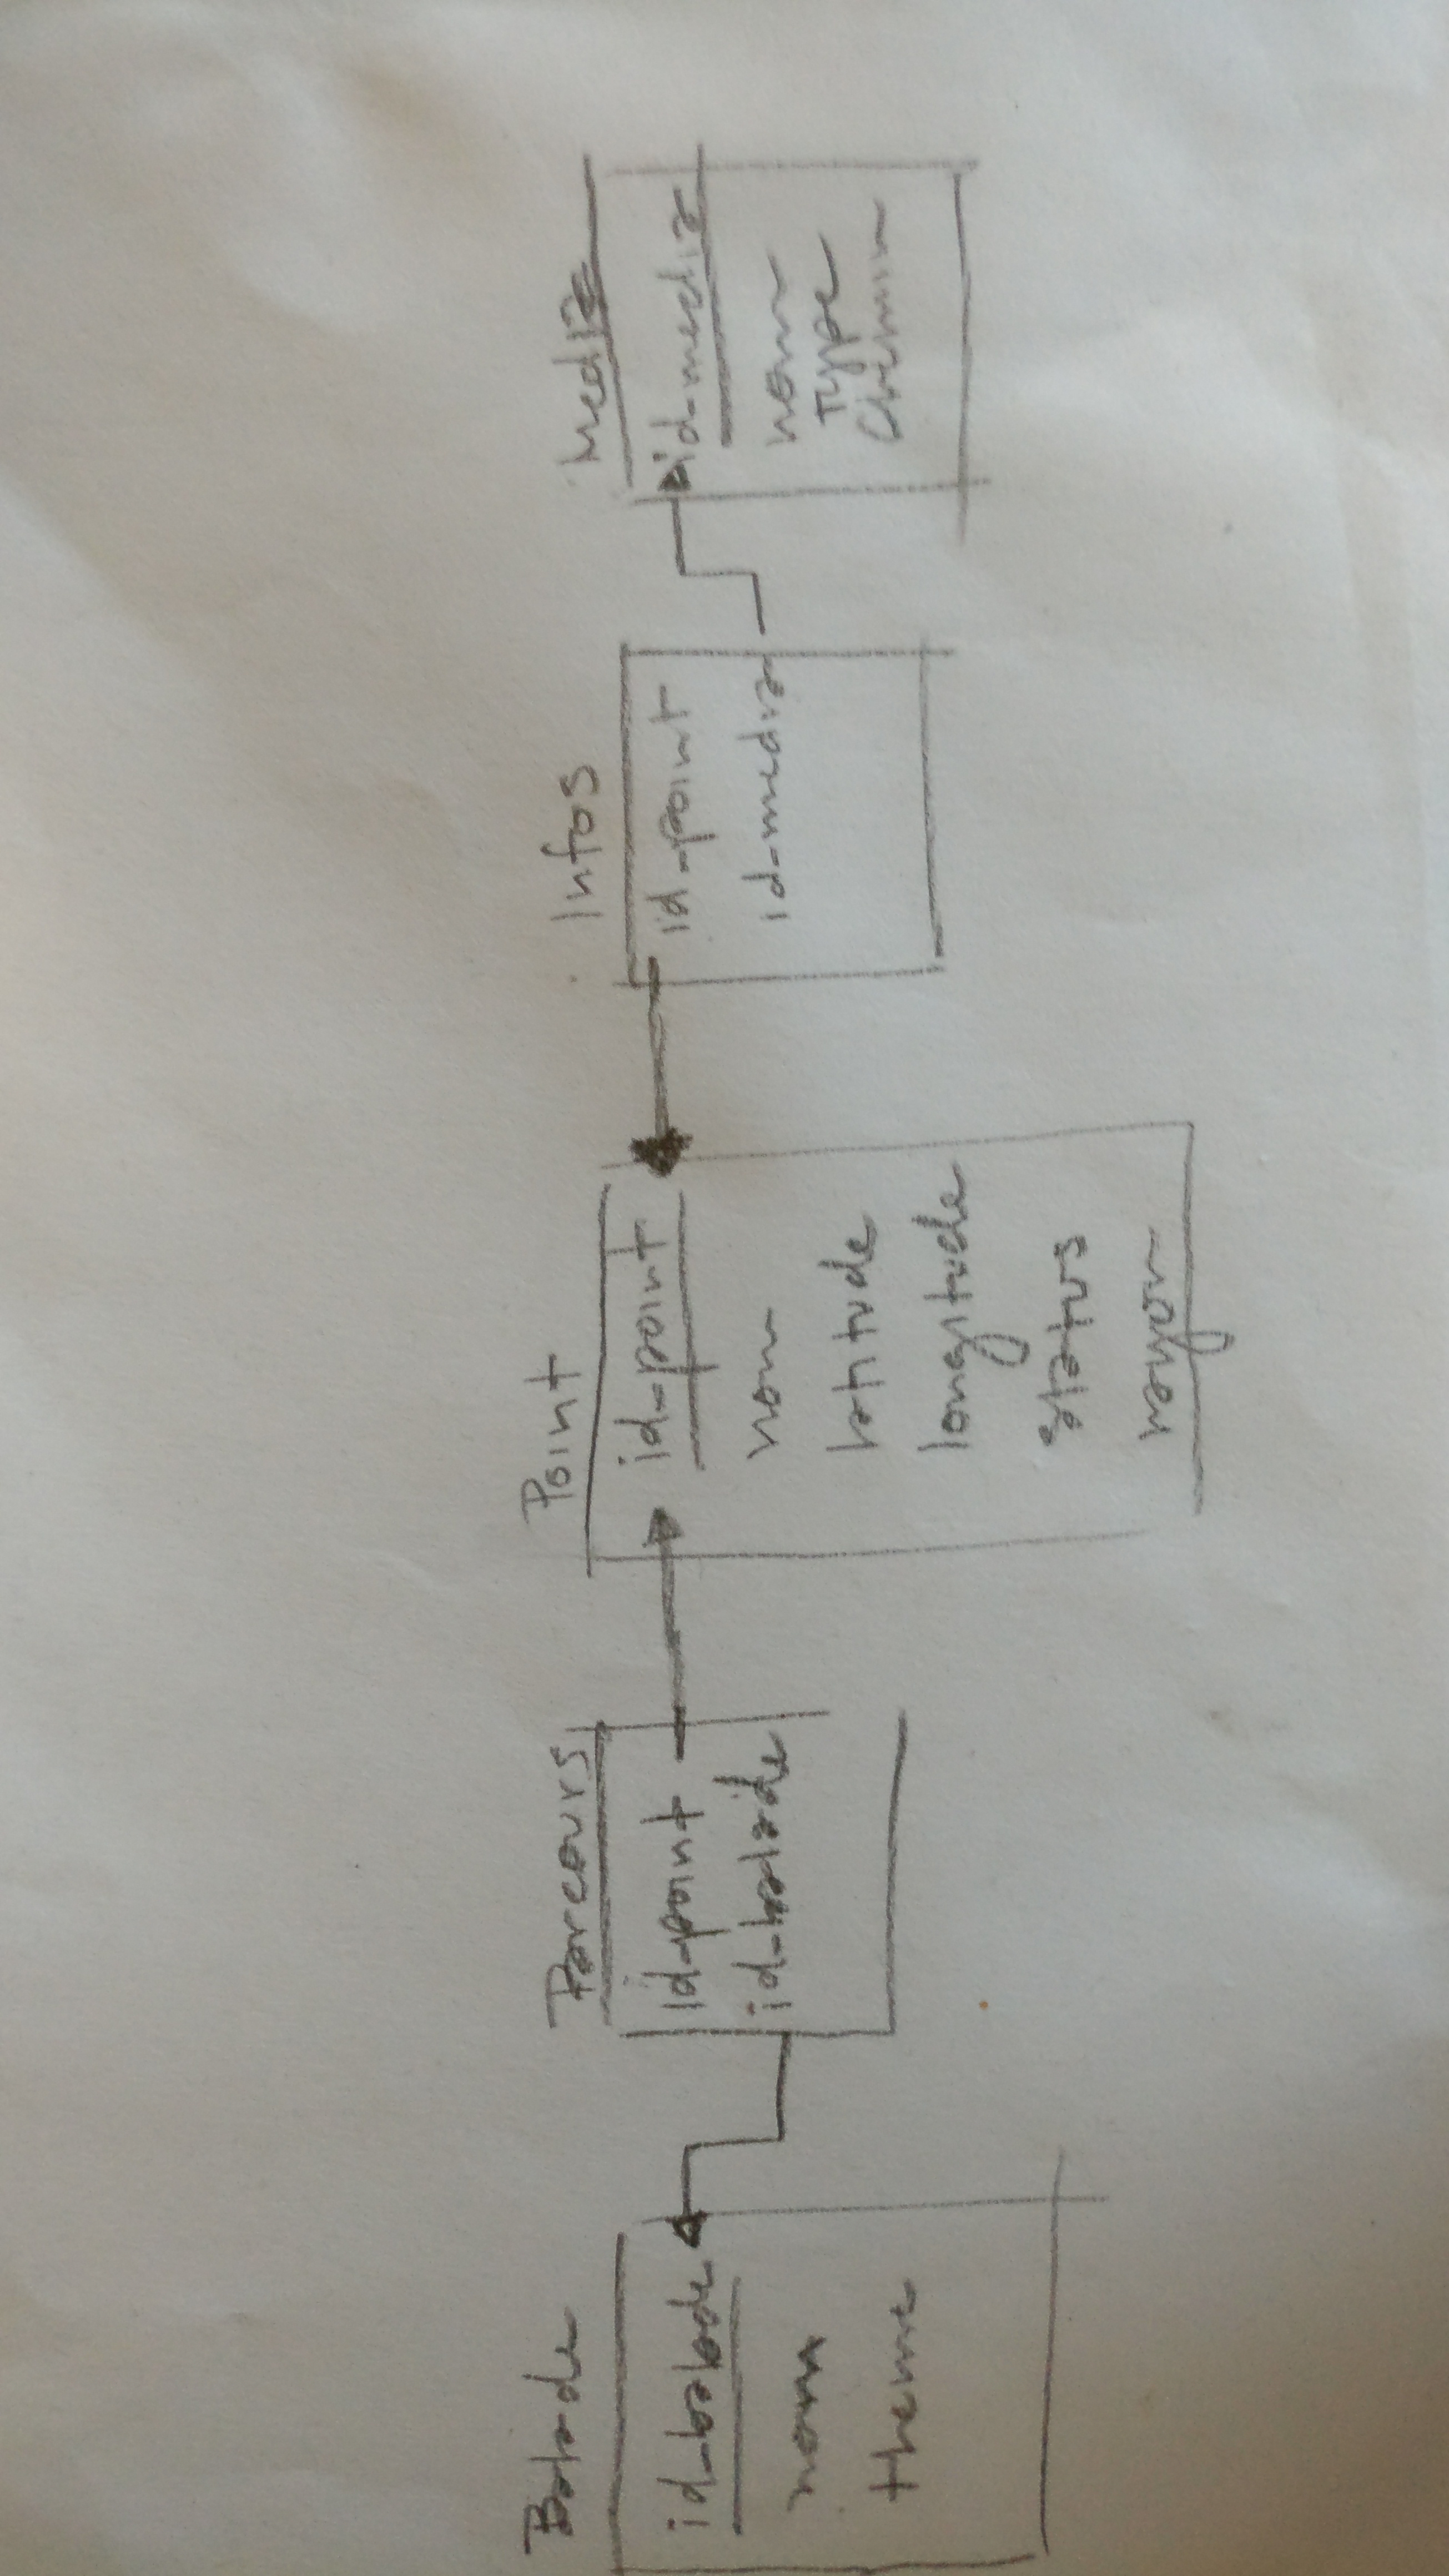 Balade
id_balade
nom
theme
Parcours
id_point
id_balade
Point
id_point
nom
latitude
longitude
status
rayon
Infos
id_point
id_media
Media
id_media
nom
type
Chemin